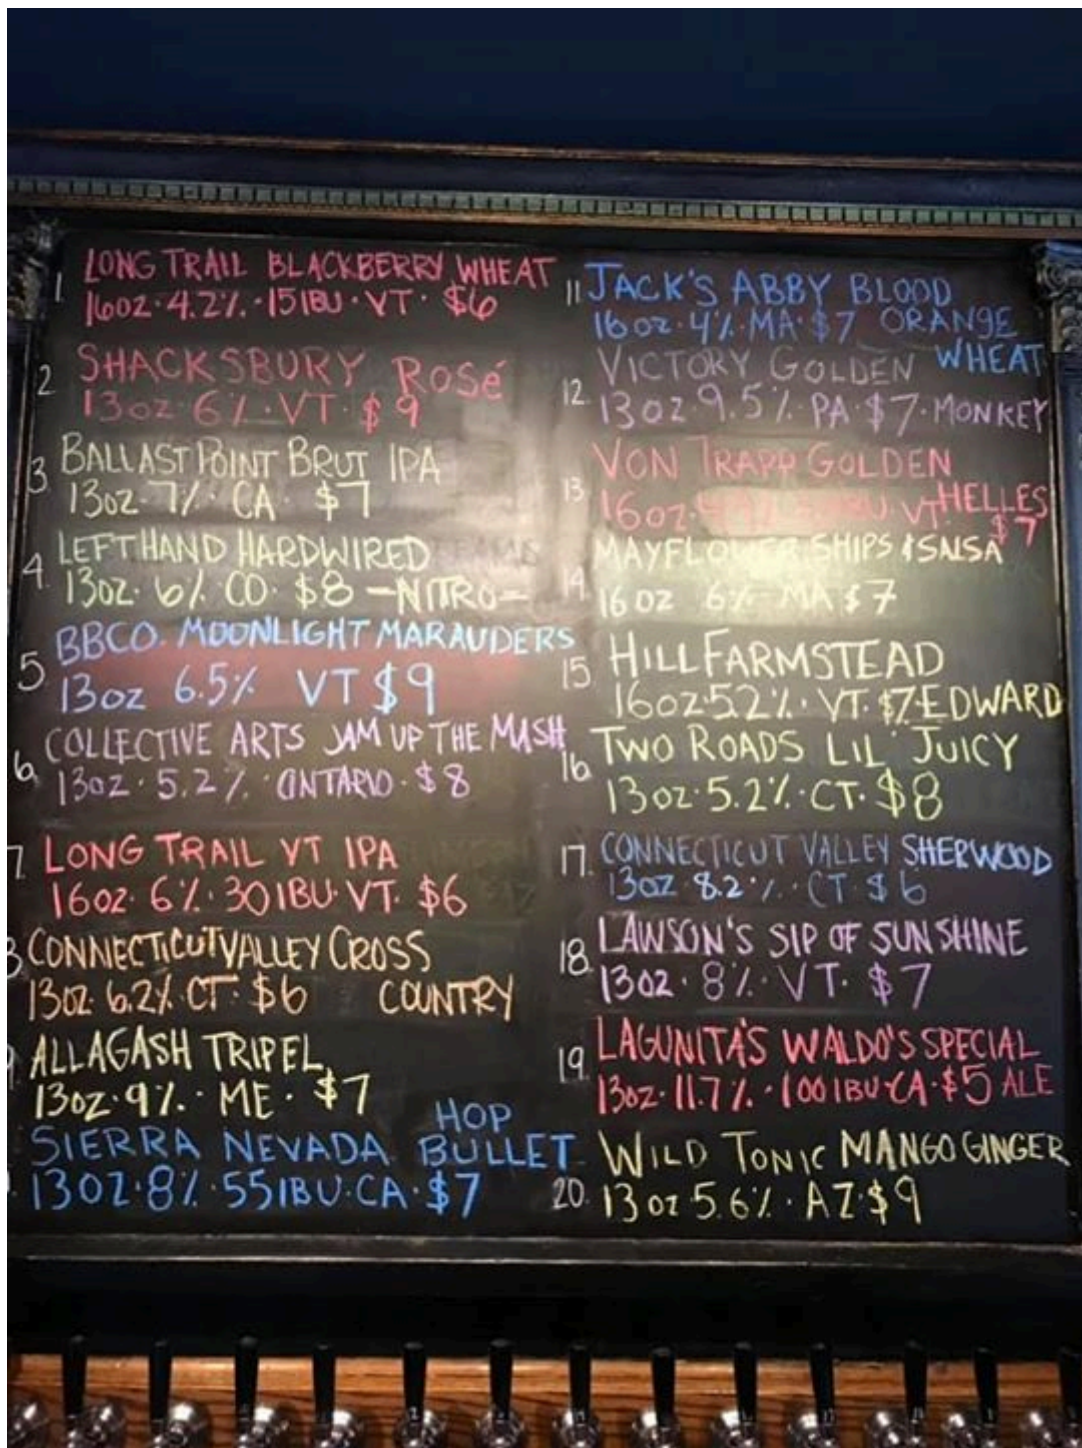 1 LONG TRAIL BLACKBERRY WHEAT
16oz · 4.2% · 15IBU · VT · $6
2 SHACKSBURY ROSé
13oz 6% · VT · $9
3 BALLAST POINT BRUT IPA
13oz · 7% · CA · $7
4. LEFT HAND HARDWIRED
13oz · 6% CO · $8 -NITRO-
5 BBCO. MOONLIGHT MARAUDERS
13oz 6.5% VT $9
6 COLLECTIVE ARTS JAM UP THE MASH
13oz · 5.2% · ONTARIO · $8
7. LONG TRAIL VT IPA
16oz · 6% · 30IBU · VT. $6
CONNECTICUT VALLEY CROSS
13oz · 6.2% CT · $6 COUNTRY
ALLAGASH TRIPEL
13oz · 9% · ME · $7
HOP
SIERRA NEVADA BULLET
13OZ · 8% · 55IBU · CA · $7
11 JACK'S ABBY BLOOD
16oz · 4% · MA · $7 ORANGE
WHEAT
12. VICTORY GOLDEN
13oz 9.5% · PA · $7 · MONKEY
13 VON TRAPP GOLDEN
16oz · VT HELLES
$7
MAYFLOWER SHIPS & SALSA
16oz 6% MA $7
15 HILL FARMSTEAD
16oz · 5.2% · VT · $7 · EDWARD
16 TWO ROADS LIL' JUICY
13oz · 5.2% · CT · $8
17. CONNECTICUT VALLEY SHERWOOD
13oz 8.2% · CT $6
18. LAWSON'S SIP OF SUNSHINE
13oz · 8% · VT · $7
19. LAGUNITA'S WALDO'S SPECIAL
13oz · 11.7% · 100IBU · CA · $5 ALE
20. WILD TONIC MANGO GINGER
13oz 5.6% · AZ · $9